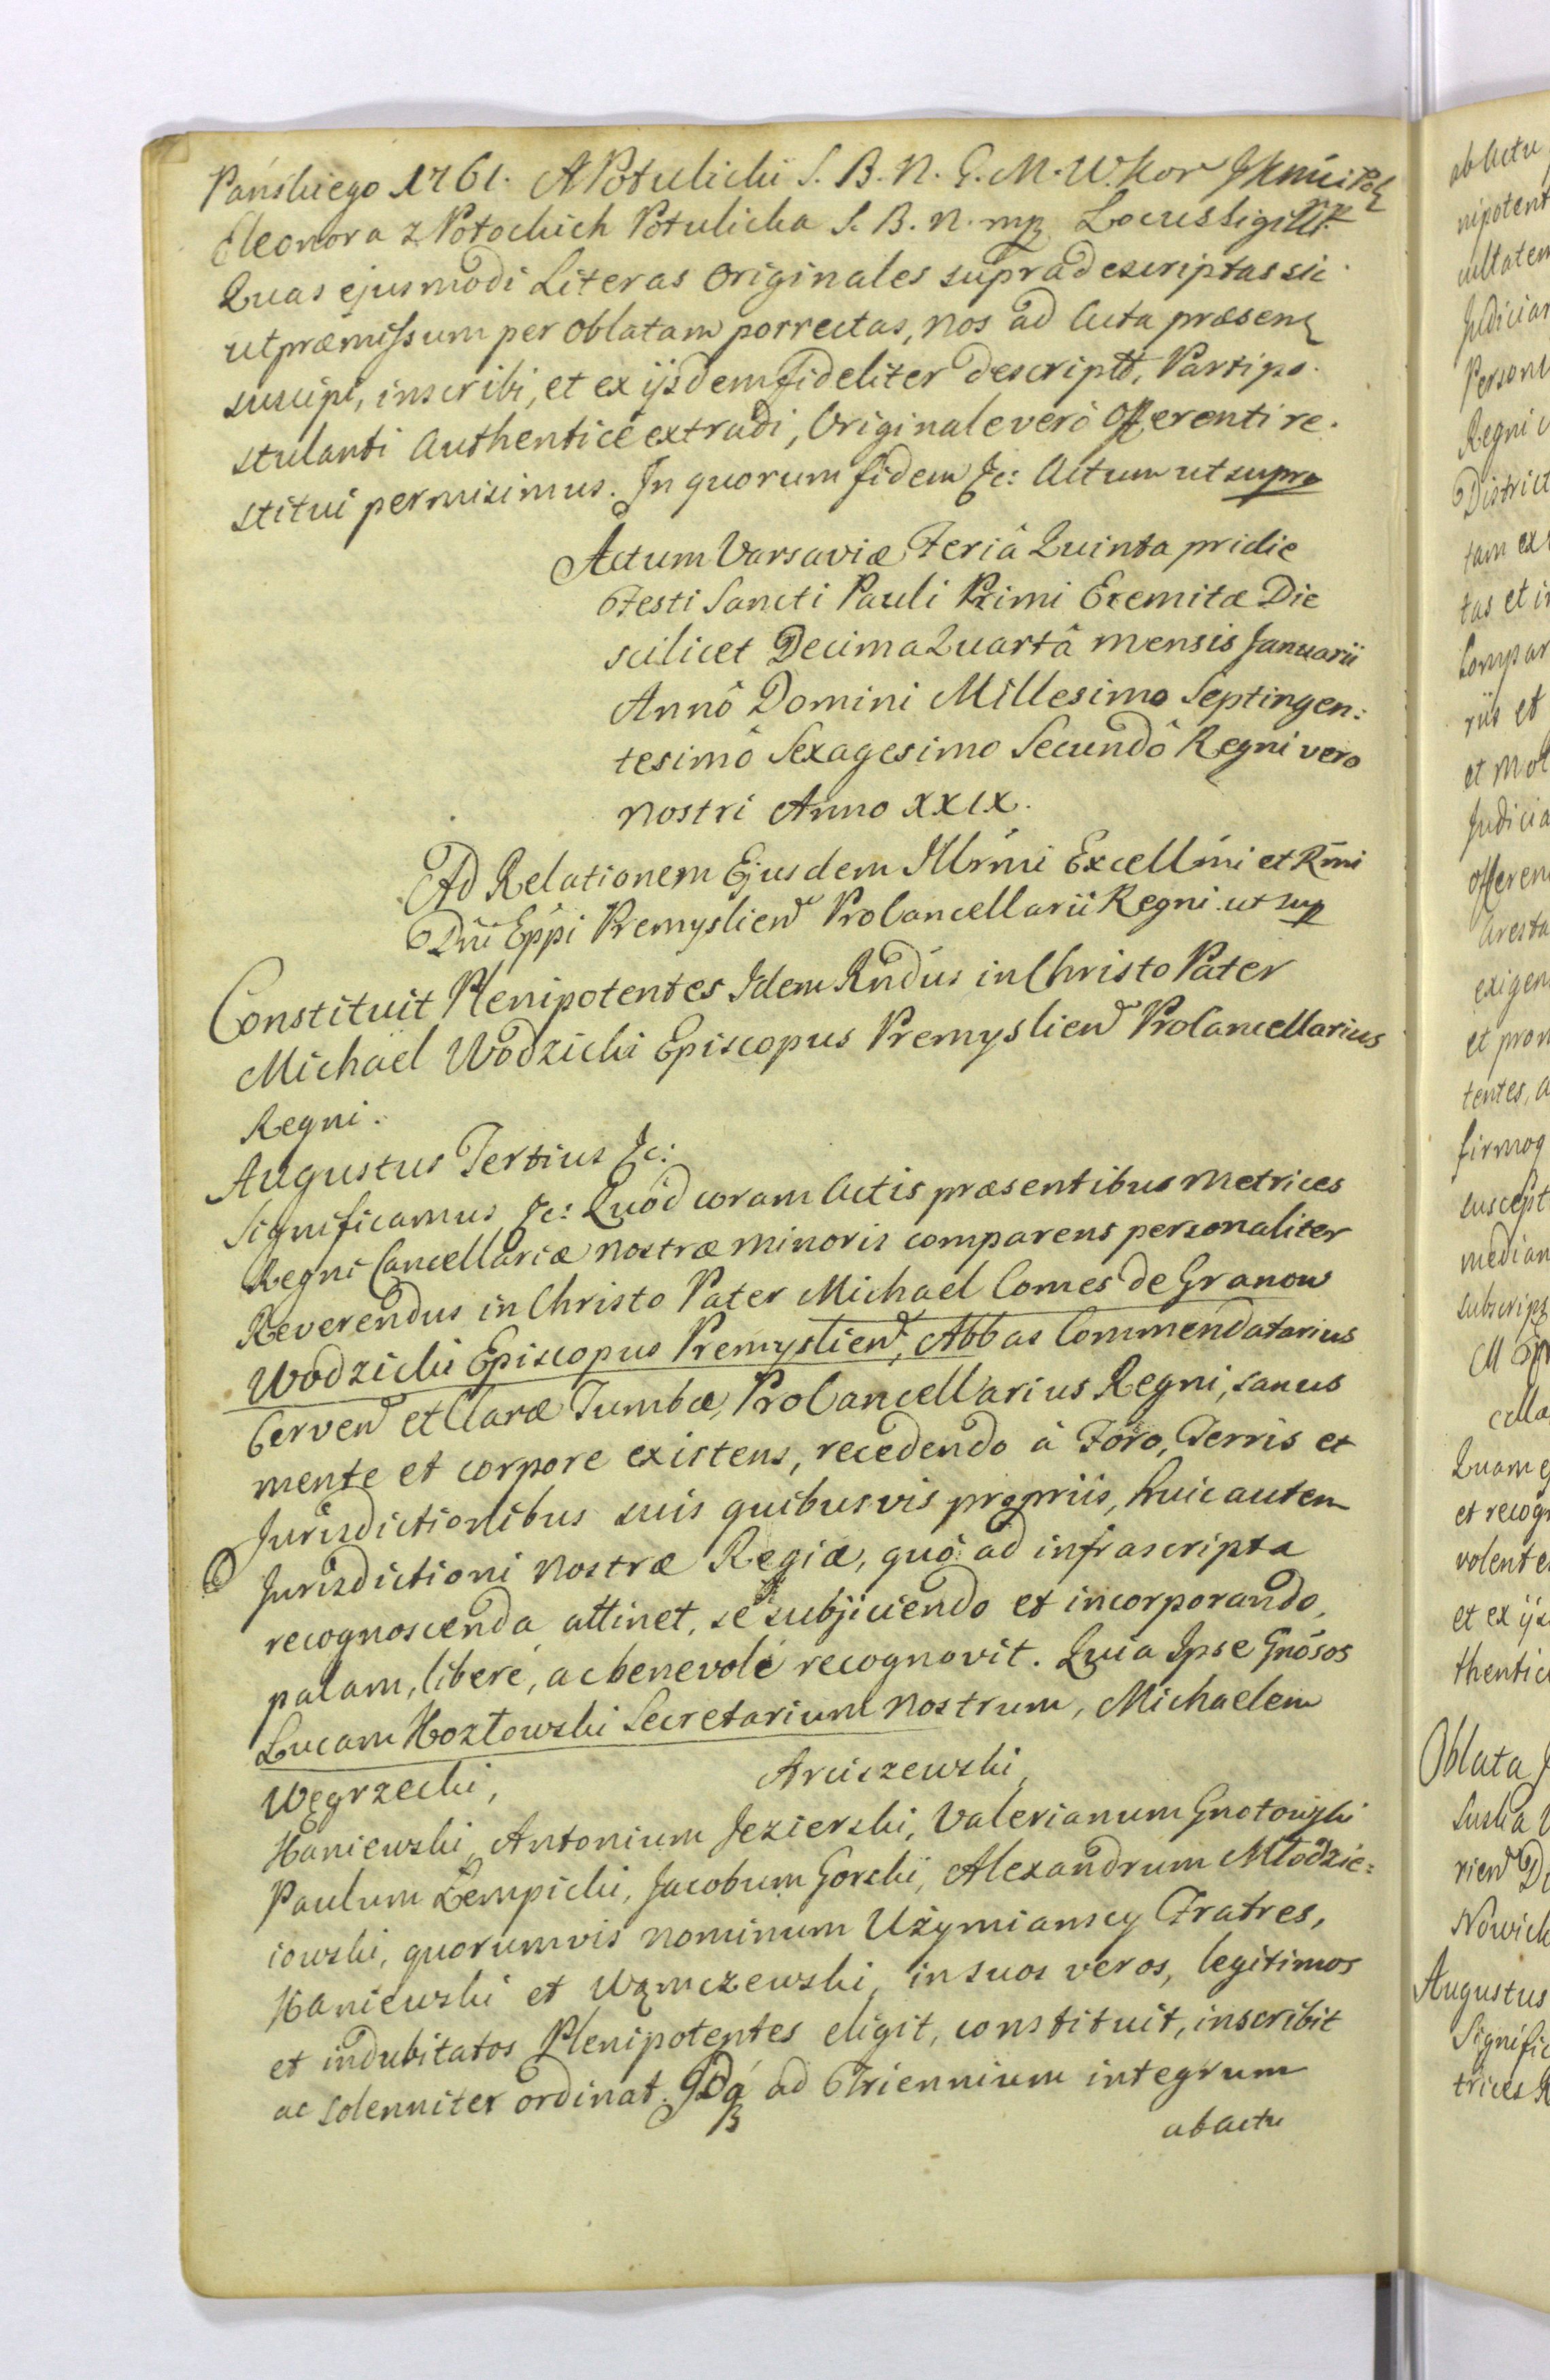 Pańskiego 1761. A Potulicki S. B. N. G. M. W. Kor
Eleonora z Potockich Potulicka S. B. N. mp Locus Sigilli.
Quas ejusmodi Literas Originales supradescriptas sic
ut præmissum per Oblatam porrectas, nos ad Acta præsen
suscipi, inscribi, et ex ijsdem fideliter descriptt, Parti po.
stulanti Authenticè extradi, Originale verò Offerenti re.
stitui permisimus. In quorum fidem &c: Actum ut supra
Actum Varsaviæ Feriâ Quinta pridie
Festi Sancti Pauli Primi Eremitæ Die
scilicet Decima Quartâ mensis Januarii
Annô Domini Millesimo Septingen:
tesimô Sexagesimo Secundô Regni vero
nostri Anno XXIX.
Ad Relationem Ejusdem Illrmi Excellmi et Rmi
Dni Eppi Premyslien Procancellarii Regni ut sup
Constituit Plenipotentes Idem Rndus in Christo Pater
Michael Wodzicki Episcopus Premyslien Procancellarius
Regni.
Augustus Tertius &c:
Significamus &c: Quôd coram Actis præsentibus Metrices
Regni Cancellariæ nostræ minoris comparens personaliter
Reverendus in Christo Pater Michael Comes de Granow
Wodzicki Episcopus Premyslien, Abbas Commendatarius
Cerven et Claræ Tumbæ, ProCancellarius Regni, sanus
mente et corpore existens, recedendo à Foro, Terris et
Jurisdictionibus suis quibusvis propriis, huic autem
Jurisdictioni nostræ Regiæ, quò ad infrascripta
recognoscenda attinet, se subjiciendo et incorporando,
palam, liberé, ac benevolé recognovit. Quia Ipse Gnosos
Lucam Kozłowski Secretarium nostrum, Michaelem
Węgrzecki, Arciszewski,
Kaniewski, Antonium Jezierski, Valerianum Gnotowski
Paulum Łempicki, Jacobum Gorski, Alexandrum Młodzie:
iowski, quorumvis nominum Użymianscy Fratres,
Kaniewski et Wąmczewski, in suos veros, legitimos
et indubitatos Plenipotentes eligit, constituit, inscribit
ac solenniter ordinat. ad Triennium integrum
ab actu